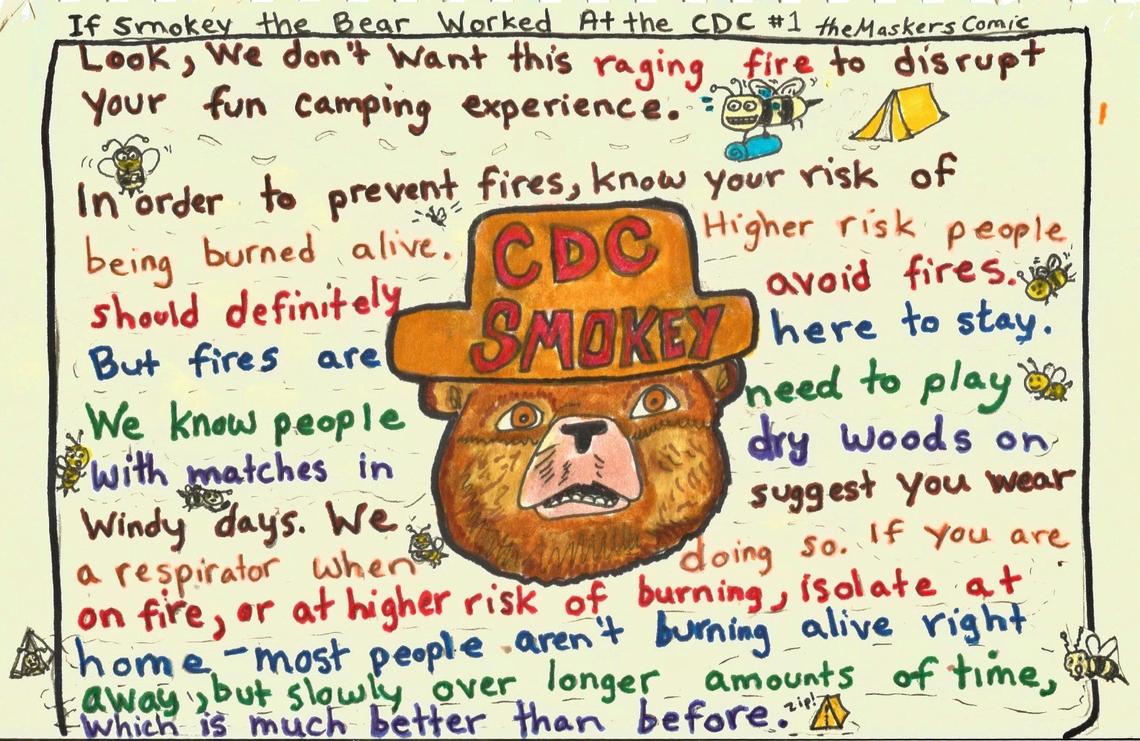 If Smokey the Bear Worked At the CDC #1 theMaskersComic
Look, We don't want this raging fire to disrupt
your fun camping experience.
In order to prevent fires, know your risk of
being burned alive. Higher risk people
should definitely avoid fires.
But fires are here to stay.
We know people need to play
with matches in dry woods on
windy days. We suggest you wear
a respirator when doing so. If you are
on fire, or at higher risk of burning, isolate at
home - most people aren't burning alive right
away, but slowly over longer amounts of time,
which is much better than before. zip!
CDC
SMOKEY